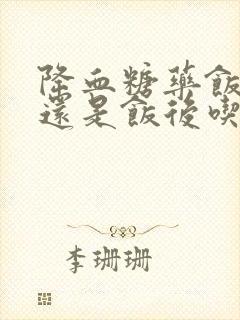 降血糖藥飯
還是飯後喫
李珊珊